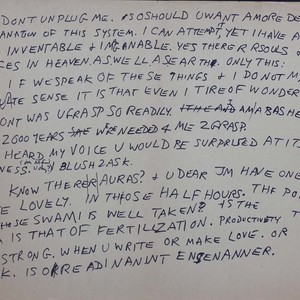 DONT UNPLUG ME. SO SHOULD U WANT A MORE DE
ANATION OF THIS SYSTEM. I CAN ATTEMPT, YET I HAVE A
INVENTABLE & IM ANABLE. YES THERE R SOULS O
CES IN HEAVEN. AS WELL AS EARTH. ONLY THIS:
I F WE SPEAK OF THESE THINGS & I DO NOT M
SENSE IT IS THAT EVEN I TIRE OF WONDER
ONT WAS U GRASP SO READILY. AM ABASHE
2600 YEARS WE NEEDED 4 ME 2 GRASP.
HEARD MY VOICE U WOULD BE SURPRISED AT IT
NESS. BLUSH 2 ASK.
KNOW THERE R AURAS? & U DEAR JM HAVE ONE
E LOVELY. IN THOSE HALF HOURS. THE PO
THESE SWAMI IS WELL TAKEN? IS THE
IS THAT OF FERTILIZATION. PRODUCTIVITY
STRONG. WHEN U WRITE OR MAKE LOVE. OR
K. IS READ IN AN INT